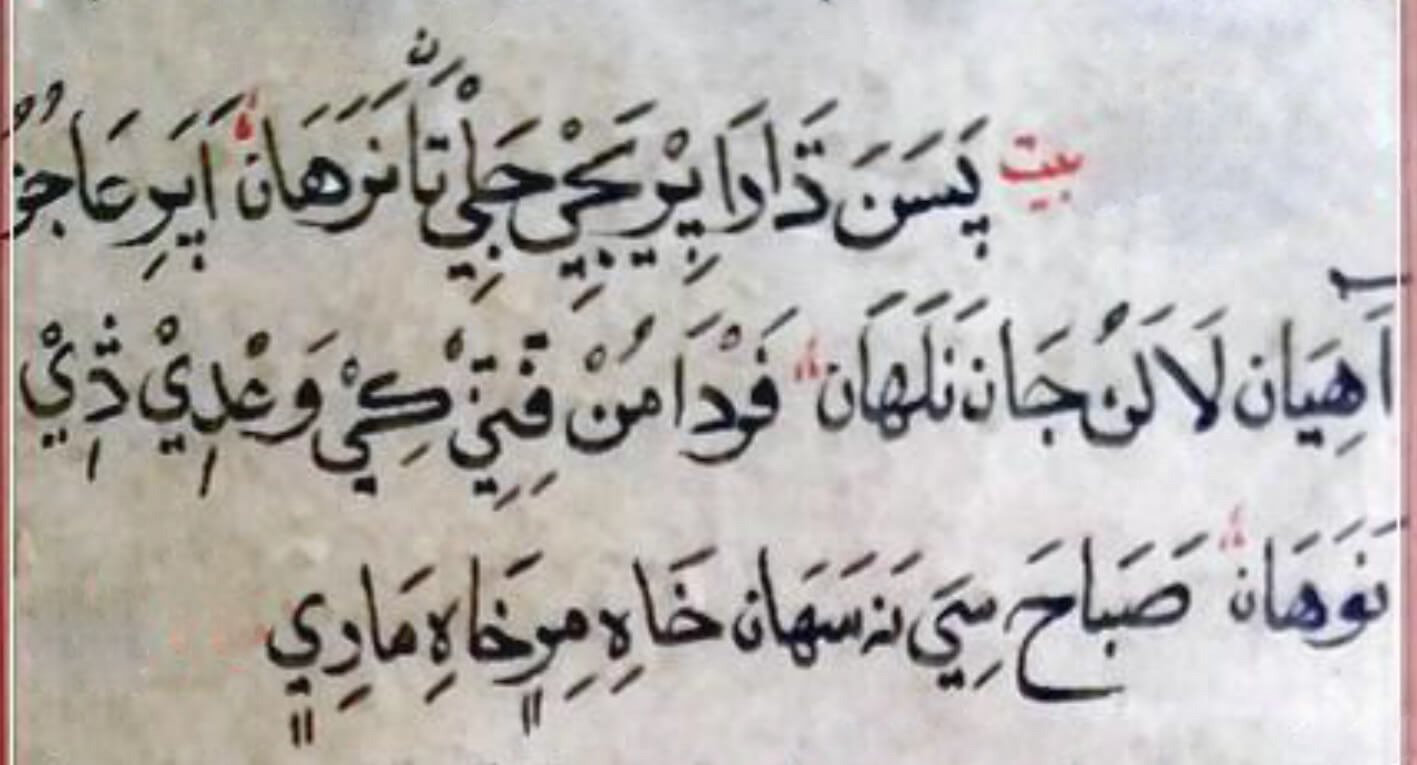 بيت پَسَنَ ڌَارَا پِرْيَجِيْ جَلِيْ تَان نَرَهَان اَپَرِ
آهِيَان لَالَنُ جَان نَلَهَان فَوْدَا مُنْ كِيْ وَعْدِيْ
نَوَهَان صَبَاحَ سِيَ نَہ سَهَان خَاهِ مِرِ خَاهِ مَارِيِ